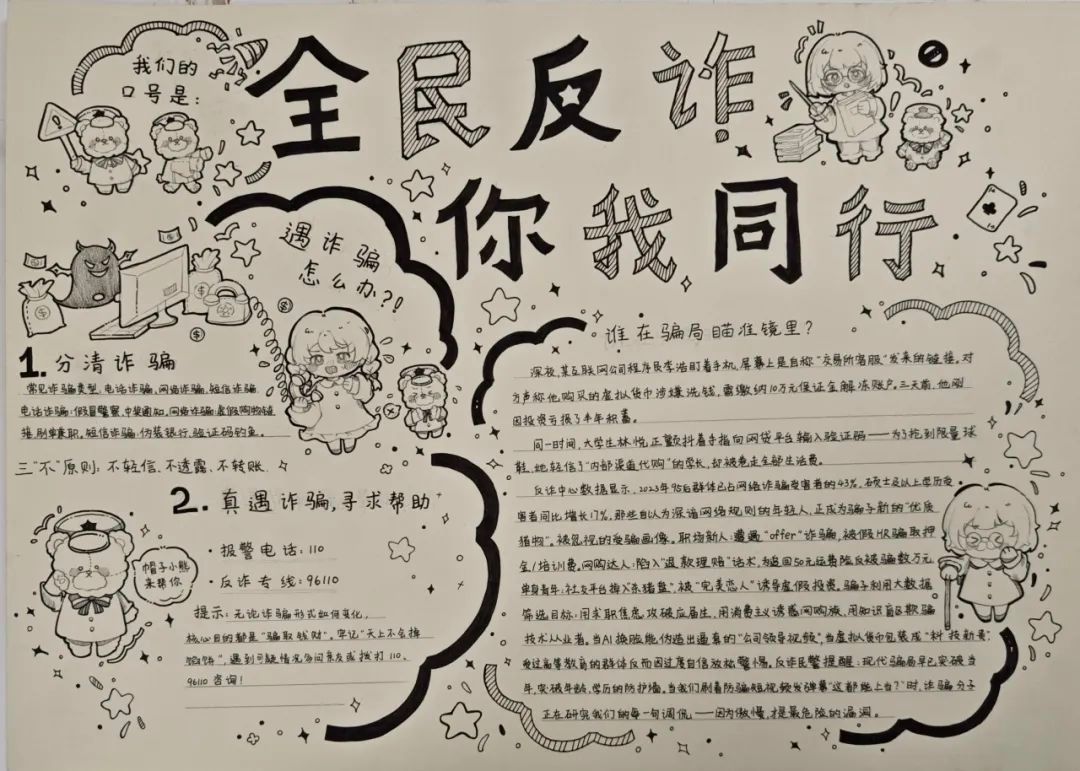 我们的
口号是:
全民反诈
你我同行
遇诈骗
怎么办?!
1.分清诈骗
常见诈骗类型:电话诈骗、网络诈骗、短信诈骗
电话诈骗:假冒警察、中奖通知,网络诈骗:虚假购物链
接、刷单兼职。短信诈骗:伪装银行、验证码钓鱼。
三“不”原则:不轻信、不透露、不转账.
2.真遇诈骗,寻求帮助
·报警电话:110
·反诈专线:96110
帽子小熊
来帮你
提示:无论诈骗形式如何变化,
核心目的都是“骗取钱财”。牢记“天上不会掉
馅饼”,遇到可疑情况多问亲友或拨打110、
96110咨询!
谁在骗局瞄准镜里?
深夜,某互联网公司程序员李浩盯着手机,屏幕上是自称“交易所客服”发来的链接。对
方声称他购买的虚拟货币涉嫌洗钱,需缴纳10万元保证金解冻账户。三天前,他刚
因投资亏损了半年积蓄。
同一时间,大学生林悦正颤抖着手指向网贷平台输入验证码——为了抢到限量球
鞋,她轻信了“内部渠道代购”的学长,却被卷走全部生活费。
反诈中心数据显示,2023年95后群体已占网络诈骗受害者的43%,硕士及以上学历受
害者同比增长17%。那些自以为深谙网络规则的年轻人,正成为骗子新的“优质
猎物”。被忽视的受骗画像。职场新人:遭遇“offer”诈骗,被假HR骗取押
金/培训费。网购达人:陷入“退款理赔”话术,为追回50元运费险反被骗数万元
单身青年:社交平台掉入“杀猪盘”,被“完美恋人”诱导虚假投资。骗子利用大数据
筛选目标:用求职焦虑攻破应届生,用消费主义诱惑网购族,用知识盲区欺骗
技术从业者。当AI换脸能伪造出逼真的“公司领导视频”,当虚拟货币包装成“科技新贵”
受过高等教育的群体反而因过度自信放松警惕。反诈民警提醒:现代骗局早已突破当
年,突破年龄、学历的防护墙。当我们刷着防骗短视频发弹幕“这都能上当?”时,诈骗分子
正在研究我们的每一句调侃——因为傲慢,才是最危险的漏洞。